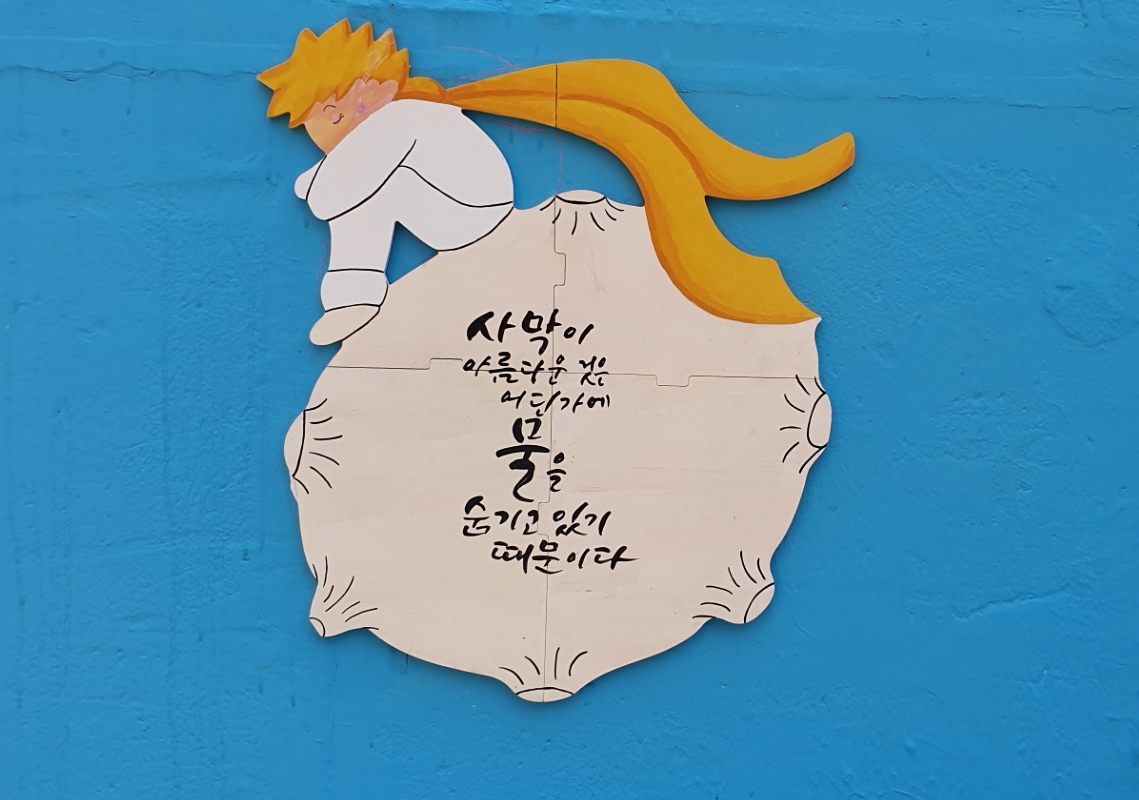 사막이
아름다운 것은
어딘가에
물을
숨기고 있기
때문이다